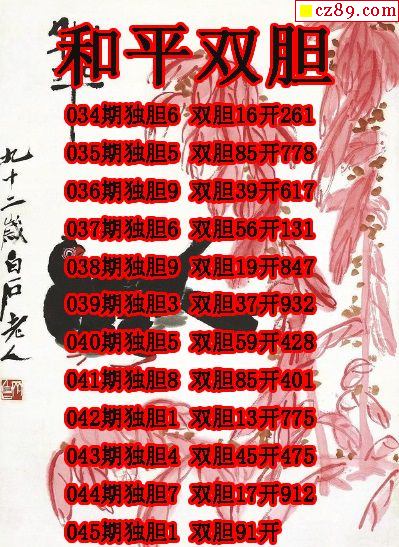 cz89.com
和平双胆
034期独胆6 双胆16开261
035期独胆5 双胆85开778
036期独胆9 双胆39开617
037期独胆6 双胆56开131
038期独胆9 双胆19开847
039期独胆3 双胆37开932
040期独胆5 双胆59开428
041期独胆8 双胆85开401
042期独胆1 双胆13开775
043期独胆4 双胆45开475
044期独胆7 双胆17开912
045期独胆1 双胆91开
九十二岁白石老人